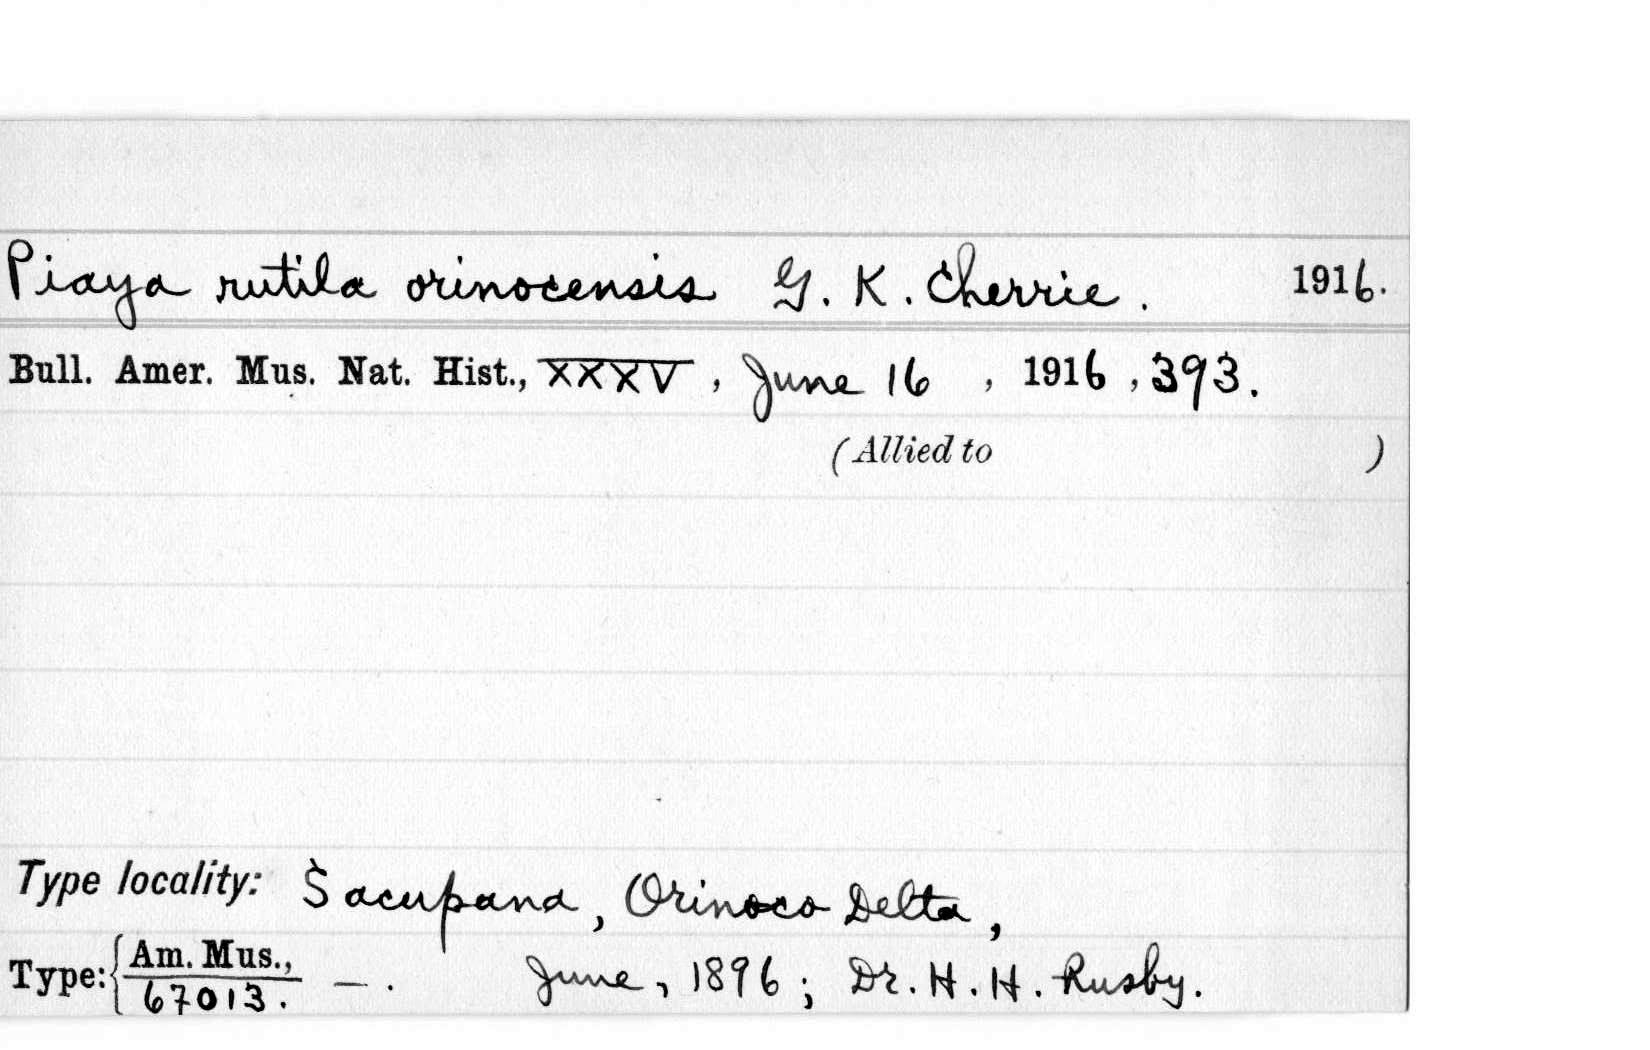 Piaya rutila orinocensis G. K. Cherrie. 1916.
Bull. Amer. Mus. Nat. Hist., XXXV, June 16, 1916, 393.
(Allied to )
Type locality: Sacupana, Orinoco Delta,
Type: { Am. Mus., — . June, 1896; Dr. H. H. Rusby.
67013.